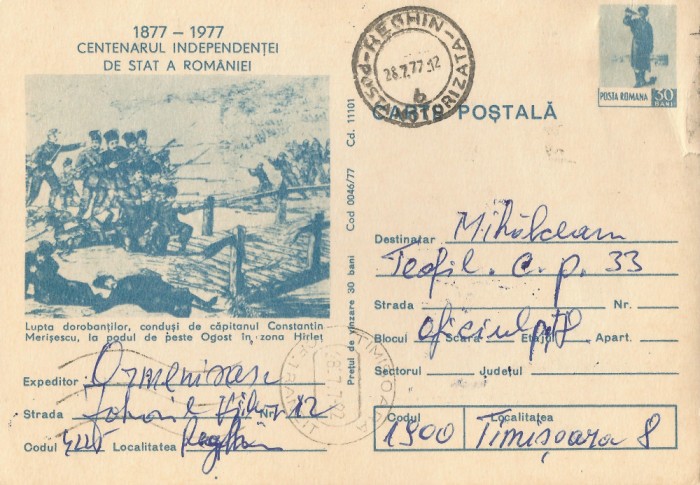 1877 – 1977
CENTENARUL INDEPENDENȚEI
DE STAT A ROMÂNIEI
Lupta dorobanților, conduși de căpitanul Constantin
Merișescu, la podul de peste Ogost în zona Hîrleț
Expeditor
Strada Nr. 12
Codul Localitatea Reghin
Prețul de vînzare 30 bani Cod 0046/77 Cd. 11101
REGHIN
28.7.77.12
b
TIMIȘOARA
POSTA ROMANA 30 BANI
CARTE POȘTALĂ
Destinatar Mihălceanu
Teofil. C. p. 33
Strada Nr.
Oficiul p.
Blocul Scara Etajul Apart.
Sectorul Județul
Codul Localitatea
1900 Timișoara 8